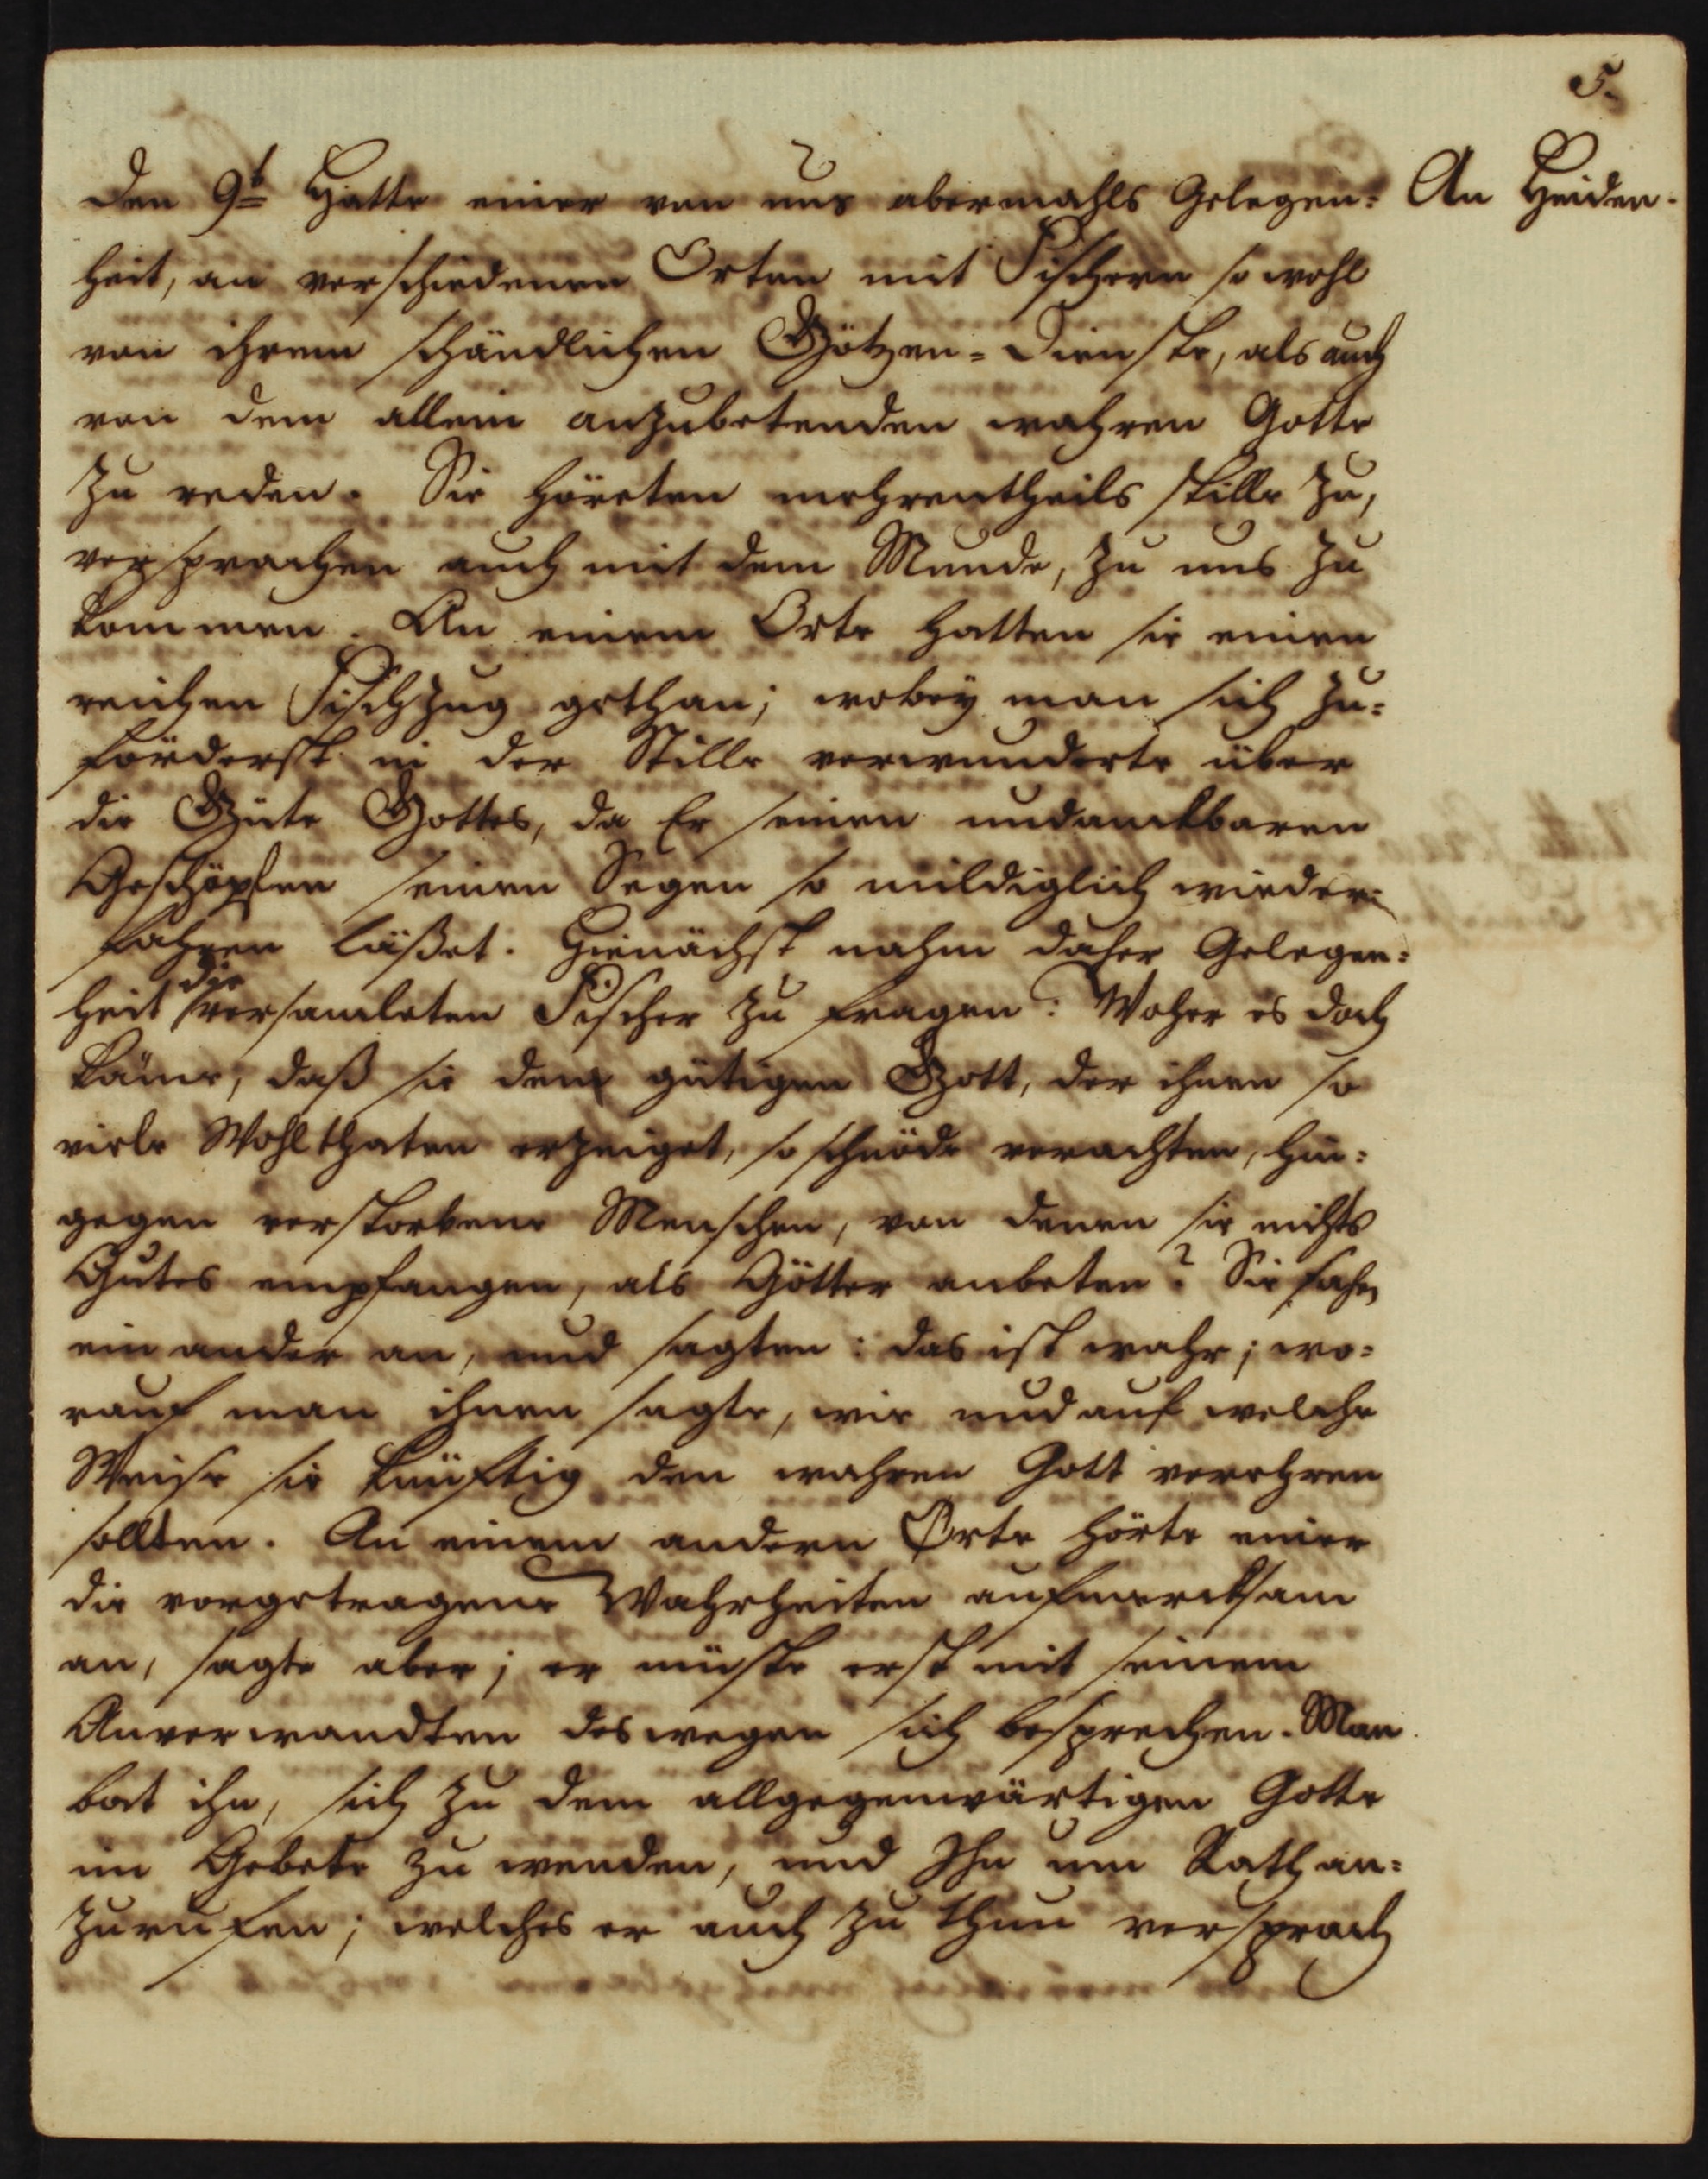 5.
Den 9t Hatte einer von uns abermahls Gelegen= An Heiden.
heit, an verschiedenen Orten mit Fischern so wohl
von ihrem schändlichen Götzen=Dienste, als auch
von dem allein anzubetenden wahren Gotte
zu reden. Sie höreten mehrentheils stille zu,
versprachen auch mit dem Munde, zu uns zu
kommen. An einem Orte hatten sie einen
reichen Fischzug gethan; wobey man sich zu=
förderst in der Stille verwunderte über
die Güte Gottes, da Er seinen undanckbaren
Geschöpfen seinen Segen so mildiglich wieder=
fahren läßet. Hienächst nahm daher Gelegen=
heit die versamleten Fischer zu fragen: Woher es doch
käme, daß sie dem gütigen Gott, der ihnen so
viele Wohlthaten erzeiget, so schnöde verachten, hin=
gegen verstorbene Menschen, von denen sie nichts
Gutes empfangen, als Götter anbeten? Sie sahen
einander an, und sagten: das ist wahr; wo=
rauf man ihnen sagte, wie und auf welche
Weise sie künftig den wahren Gott verehren
sollten. An einem andern Orte hörte einer
die vorgetragene Wahrheiten aufmercksam
an, sagte aber; er müste erst mit seinem
Anverwandten deswegen sich besprechen. Man
bat ihn, sich zu dem allgegenwärtigen Gotte
im Gebete zu wenden, und Ihn um Rath an=
zurufen; welches er auch zu thun versprach